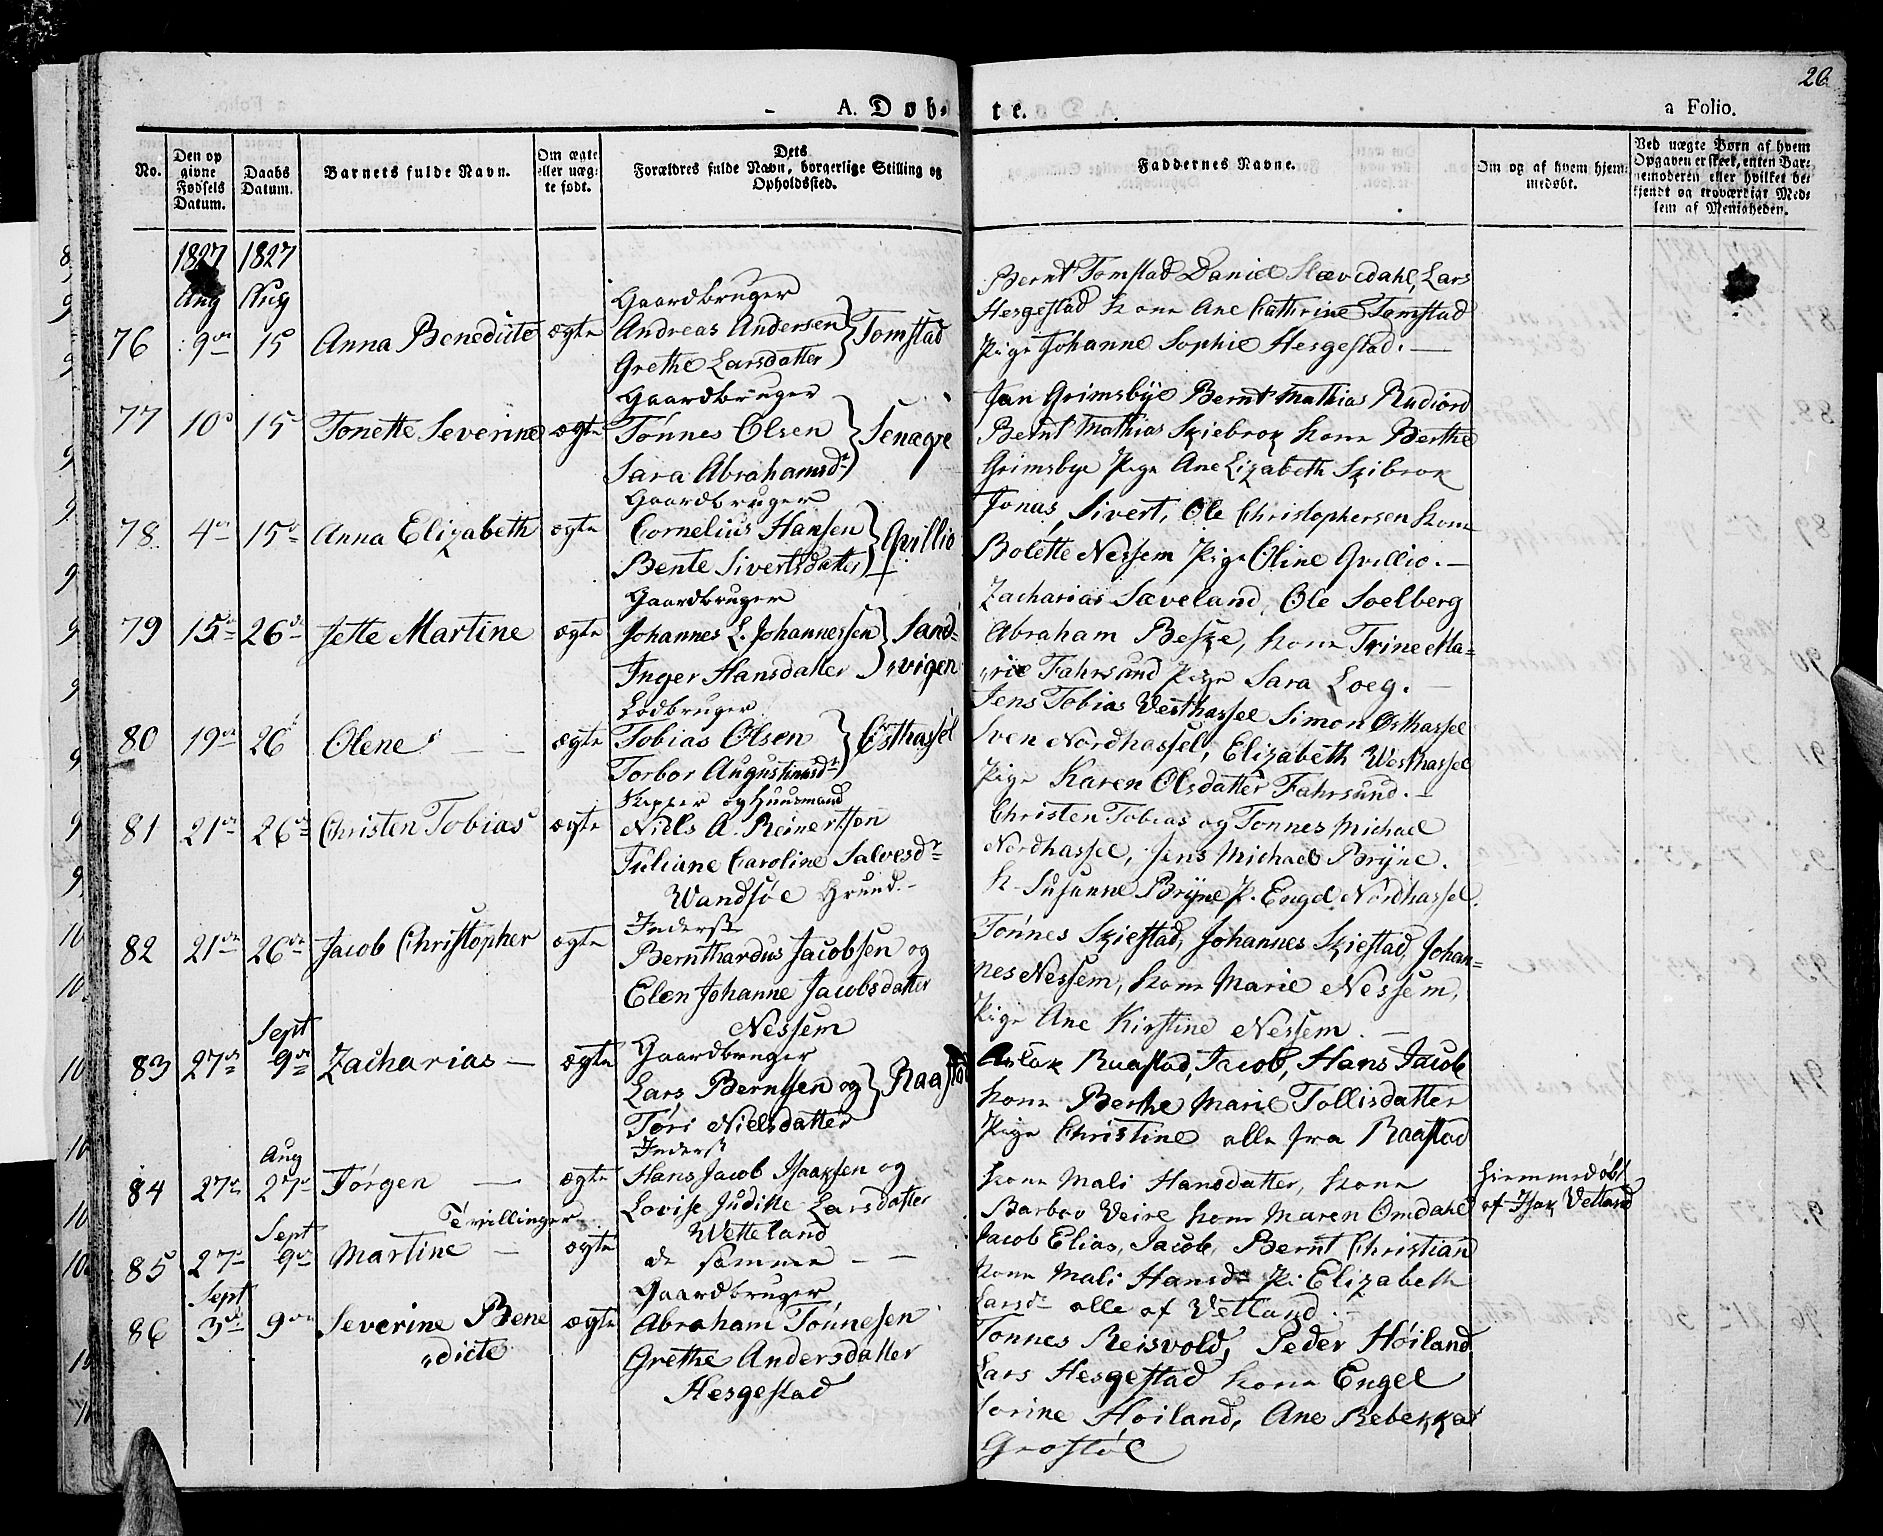 20
A. Døb-
te.
a Folio.
No.
Den op
givne
Fødsels
Datum.
Daabs
Datum.
Barnets fulde Navn.
Om ægte
eller uæg-
te født.
Dets
Forældres fulde Navn, borgerlige Stilling og
Opholdssted.
Faddernes Navne.
Om og af hvem hjem-
medøbt.
Ved uægte Børn af hvem
Opgaven er skeet, enten Bar-
nemoderen eller hvilket be-
kjendt og troværdigt Med-
lem af Menigheden.
1827 1827
Aug Aug
76 9de 15 Anna Benedicte ægte
Gaardbruger
Andreas Andersen
Grethe Larsdatter
Tomstad
Bernt Tomstad Daniel Slævedahl, Lars
Hesgestad Kone Ane Cathrine Tomstad
Pige Johanne Sophie Hesgestad.
77 10d 15d Tonette Severine ægte
Gaardbruger
Tønnes Olsen
Sara Abrahamsdr
Jan Grimsbye Bernt Mathias Rudiord
Bernt Mathias Skiebrok Kone Berthe
Grimsbye Pige Ane Lizabeth Skibrok
78 4de 15de Anna Elizabeth ægte
Gaardbruger
Cornelius Hansen
Bente Sivertsdatter
Qvillio
Jonas, Sivert, Ole Christophersen Kone
Bolette Nessem Pige Oline Qvillio.
79 15de 26de Jette Martine ægte
Gaardbruger
Johannes L. Johannessen
Inger Hansdatter
Sand-
vigen
Zacharias Sæveland, Ole Soelberg
Abraham Beske, Kone Trine Ma=
rie Fahrsund Pige Sara Loeg.
80 19de 26 Olene ægte
Lodbruger
Tobias Olsen
Torbor Augustinusdr
Østhassel
Jens Tobias Vesthassel Simon Østhassel
Sven Nordhassel, Elizabeth Westhassel
Pige Karen Olsdatter Fahrsund.
81 21de 26de Christen Tobias ægte
Skipper og Huusmand
Niels A. Reinertsen
Juliane Caroline Salvesdr
Wandsøe Grund.
Christen Tobias og Tonnes Michael
Nordhassel, Jens Michael Bryne.
K. Susanne Bryne P. Engel Nordhassel.
82 21de 26de Jacob Christopher ægte
Inderst
Bernthardus Jacobsen og
Elen Johanne Jacobsdatter
Nessem
Tønnes Skiestad, Johannes Skiestad, Johan=
nes Nessem, Kone Marie Nessem,
Pige Ane Kirstine Nessem.
Sept
83 27de 9de Zacharias ægte
Gaardbruger
Lars Berntsen og
Tøri Nielsdatter
Raastad
Aslak Raastad, Jacob, Hans Jacob
Kone Berthe Marie Tollisdatter
Pige Christine alle fra Raastad
Aug
84 27de 27de Jørgen ægte
Inderst
Hans Jacob Isaaksen og
Lovise Judithe Larsdatter
Wetteland
Kone Mali Hansdatter, Kone
Barbro Veire Kone Maren Omdahl
Hiemmedøbt
af Isak Vetland
Tvillinger
Sept
85 27d 9de Martine ægte
de samme
Jacob Elias, Jacob, Bernt Christian
Kone Mali Hansdr Pi. Elizabeth
Larsdr alle af Vetland.
Sept
86 3de 9de Severine Bene
dicte
ægte
Gaardbruger
Abraham Tønnesen
Grethe Andersdatter
Hesgestad
Tonnes Reisvold, Peder Høiland
Lars Hesgestad Kone Engel
Sorine Høiland, Ane Rebekka
Grostøl